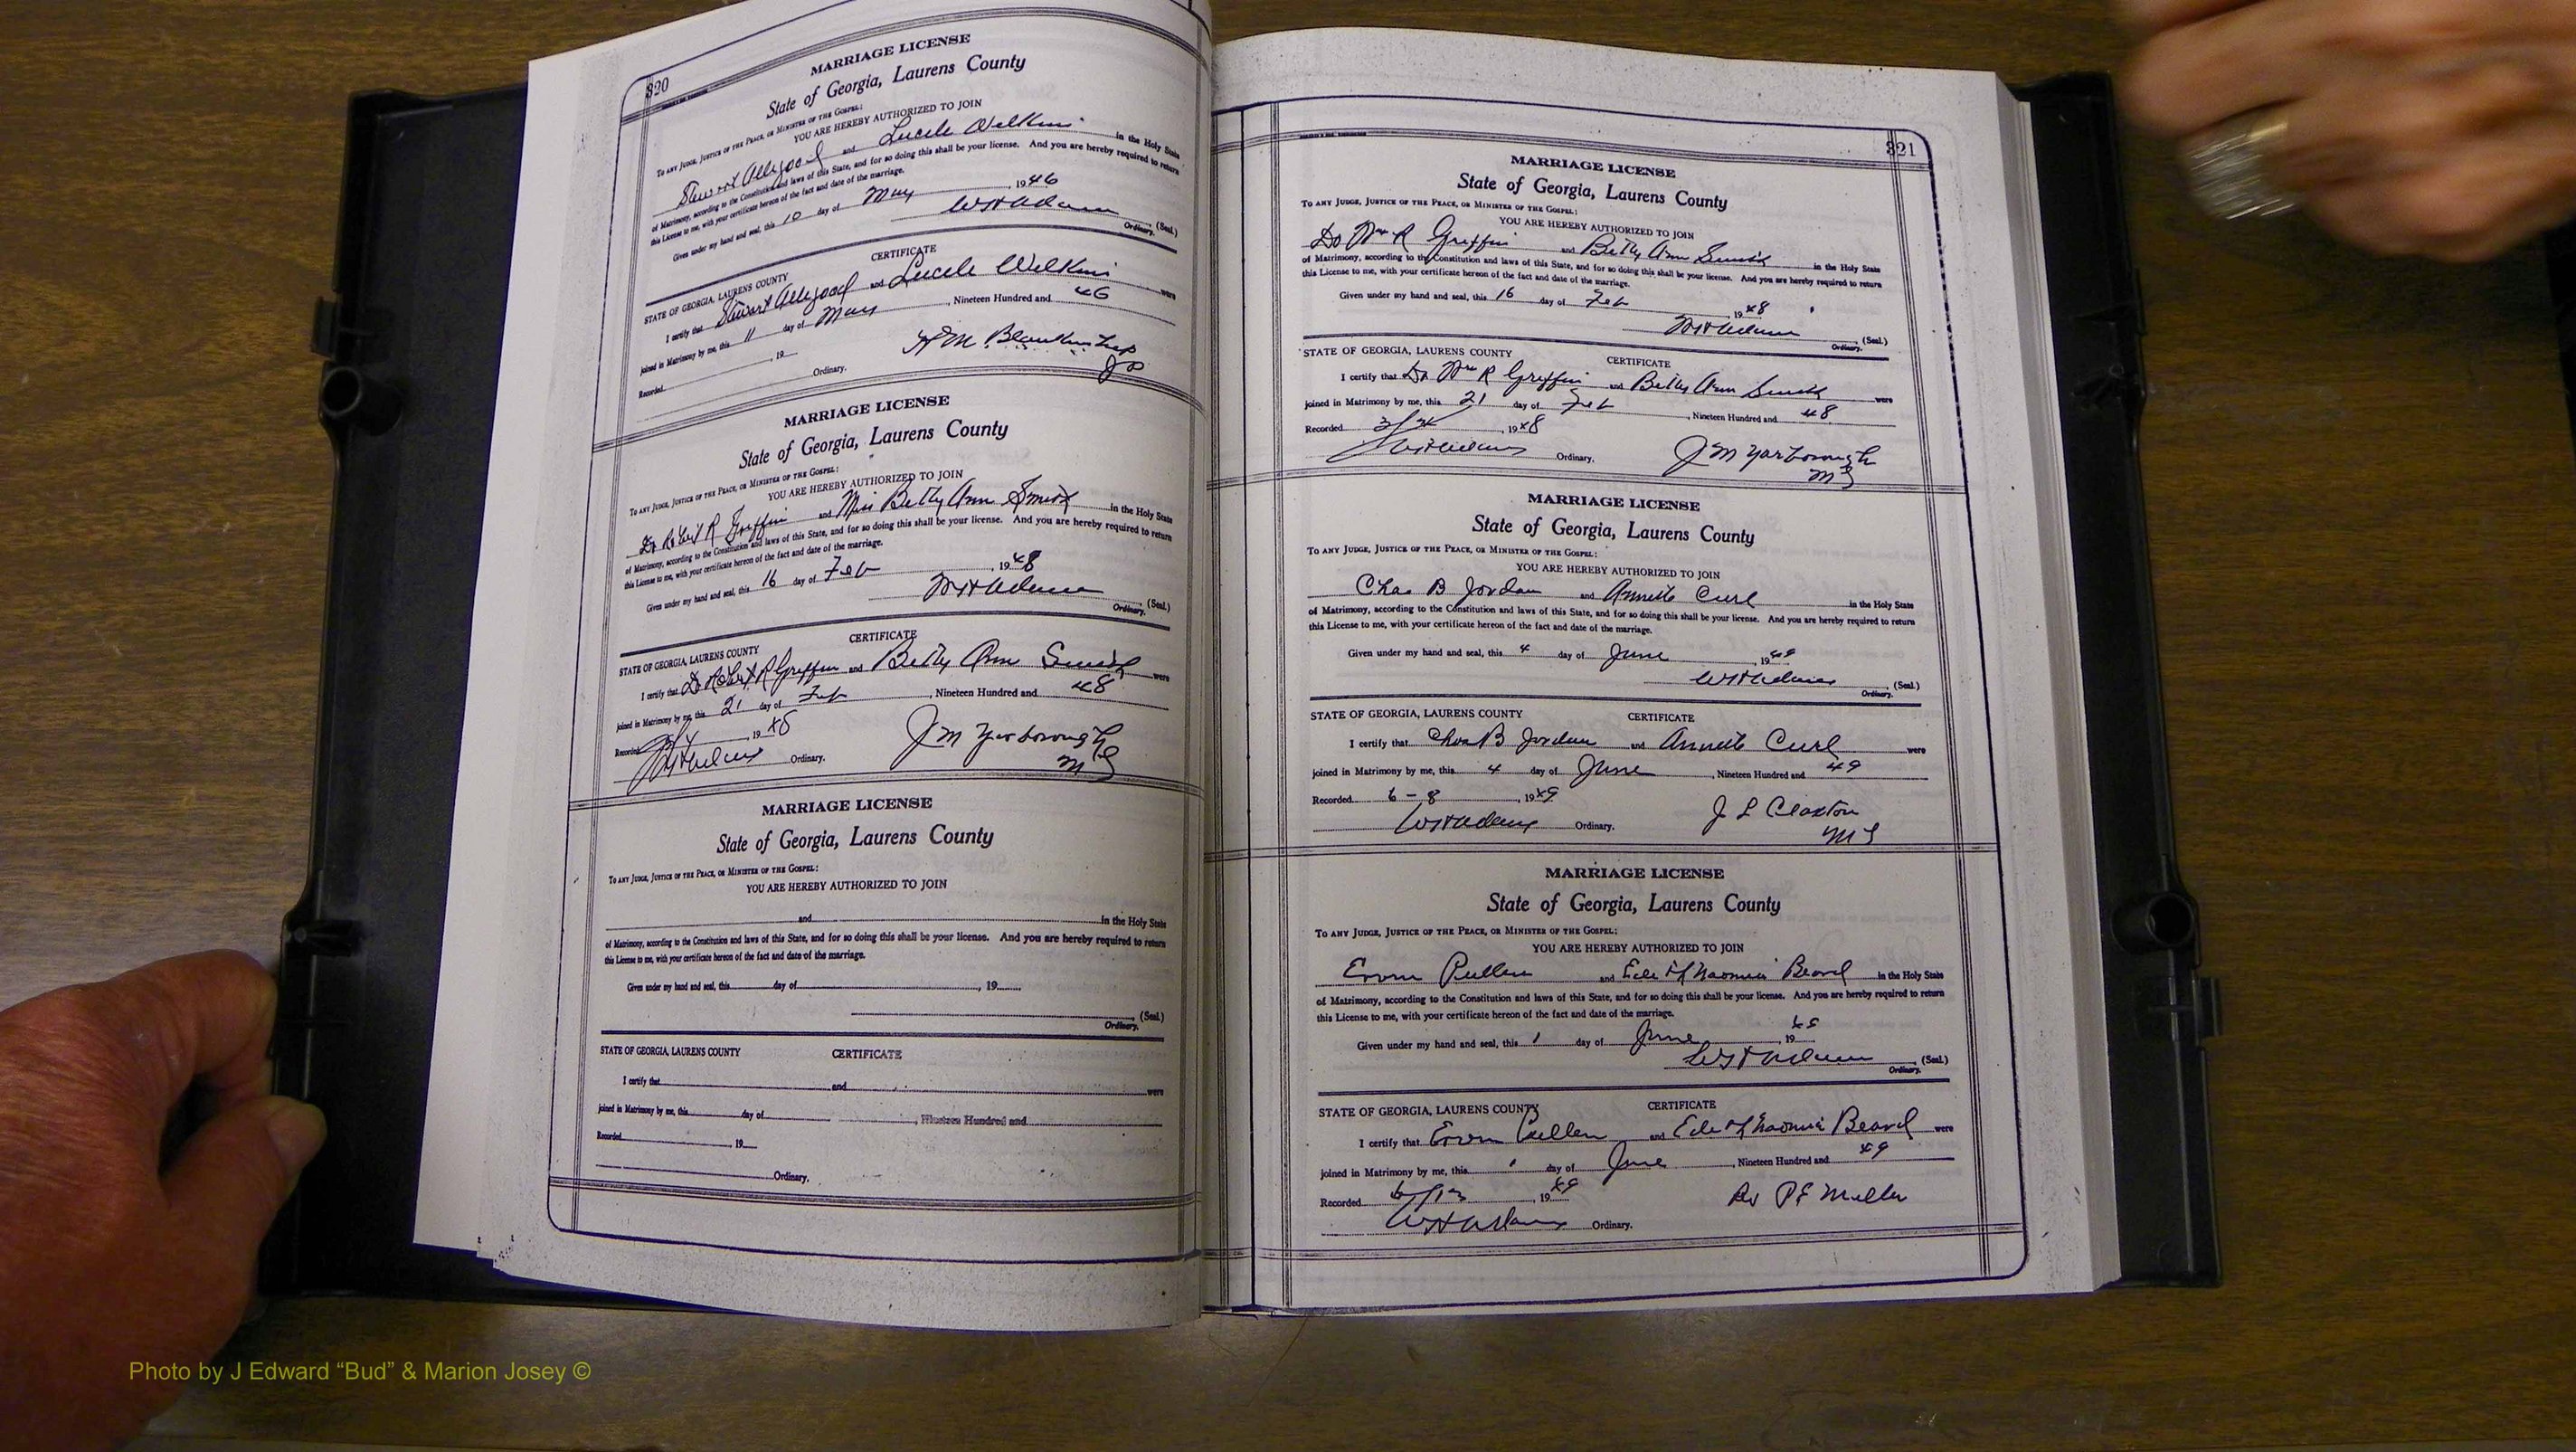 320
MARRIAGE LICENSE
State of Georgia, Laurens County
To any Judge, Justice of the Peace, or Minister of the Gospel:
YOU ARE HEREBY AUTHORIZED TO JOIN
Stewart Allgood and Lucile Wilkins in the Holy State
of Matrimony, according to the Constitution and laws of this State, and for so doing this shall be your license. And you are hereby required to return
this License to me, with your certificate hereon of the fact and date of the marriage.
Given under my hand and seal, this 10 day of May, 1946
WH Adams (Seal.)
Ordinary.
CERTIFICATE
STATE OF GEORGIA, LAURENS COUNTY
I certify that Stewart Allgood and Lucile Wilkins were
joined in Matrimony by me, this 11 day of May, Nineteen Hundred and 46
Recorded , 19
HM Blankinship
Ordinary.
JP
MARRIAGE LICENSE
State of Georgia, Laurens County
To any Judge, Justice of the Peace, or Minister of the Gospel:
YOU ARE HEREBY AUTHORIZED TO JOIN
Dr Robert R Griffin and Miss Betty Ann Smith in the Holy State
of Matrimony, according to the Constitution and laws of this State, and for so doing this shall be your license. And you are hereby required to return
this License to me, with your certificate hereon of the fact and date of the marriage.
Given under my hand and seal, this 16 day of Feb, 1948
WH Adams (Seal.)
Ordinary.
CERTIFICATE
STATE OF GEORGIA, LAURENS COUNTY
I certify that Dr Robert R Griffin and Betty Ann Smith were
joined in Matrimony by me, this 21 day of Feb, Nineteen Hundred and 48
Recorded , 1948
WH Adams Ordinary.
J M Yarborough
MG
MARRIAGE LICENSE
State of Georgia, Laurens County
To any Judge, Justice of the Peace, or Minister of the Gospel:
YOU ARE HEREBY AUTHORIZED TO JOIN
and in the Holy State
of Matrimony, according to the Constitution and laws of this State, and for so doing this shall be your license. And you are hereby required to return
this License to me, with your certificate hereon of the fact and date of the marriage.
Given under my hand and seal, this day of , 19
(Seal.)
Ordinary.
STATE OF GEORGIA, LAURENS COUNTY CERTIFICATE
I certify that and were
joined in Matrimony by me, this day of , Nineteen Hundred and
Recorded , 19
Ordinary.
321
MARRIAGE LICENSE
State of Georgia, Laurens County
To any Judge, Justice of the Peace, or Minister of the Gospel:
YOU ARE HEREBY AUTHORIZED TO JOIN
Dr Wm R Griffin and Betty Ann Smith in the Holy State
of Matrimony, according to the Constitution and laws of this State, and for so doing this shall be your license. And you are hereby required to return
this License to me, with your certificate hereon of the fact and date of the marriage.
Given under my hand and seal, this 16 day of Feb, 1948
WH Adams (Seal.)
Ordinary.
STATE OF GEORGIA, LAURENS COUNTY CERTIFICATE
I certify that Dr Wm R Griffin and Betty Ann Smith were
joined in Matrimony by me, this 21 day of Feb, Nineteen Hundred and 48
Recorded , 1948
WH Adams Ordinary.
J M Yarborough
MG
MARRIAGE LICENSE
State of Georgia, Laurens County
To any Judge, Justice of the Peace, or Minister of the Gospel:
YOU ARE HEREBY AUTHORIZED TO JOIN
Chas B Jordan and Annette Curl in the Holy State
of Matrimony, according to the Constitution and laws of this State, and for so doing this shall be your license. And you are hereby required to return
this License to me, with your certificate hereon of the fact and date of the marriage.
Given under my hand and seal, this 4 day of June, 1949
WH Adams (Seal.)
Ordinary.
STATE OF GEORGIA, LAURENS COUNTY CERTIFICATE
I certify that Chas B Jordan and Annette Curl were
joined in Matrimony by me, this 4 day of June, Nineteen Hundred and 49
Recorded 6-8, 1949
WH Adams Ordinary.
J L Claxton
MG
MARRIAGE LICENSE
State of Georgia, Laurens County
To any Judge, Justice of the Peace, or Minister of the Gospel:
YOU ARE HEREBY AUTHORIZED TO JOIN
Ervin Pullen and Naomia Beard in the Holy State
of Matrimony, according to the Constitution and laws of this State, and for so doing this shall be your license. And you are hereby required to return
this License to me, with your certificate hereon of the fact and date of the marriage.
Given under my hand and seal, this 1 day of June, 19
WH Adams (Seal.)
Ordinary.
STATE OF GEORGIA, LAURENS COUNTY CERTIFICATE
I certify that Ervin Pullen and Naomia Beard were
joined in Matrimony by me, this 1 day of June, Nineteen Hundred and 49
Recorded 6/13, 1949
WH Adams Ordinary.
Rev P E Miller
Photo by J Edward “Bud” & Marion Josey ©